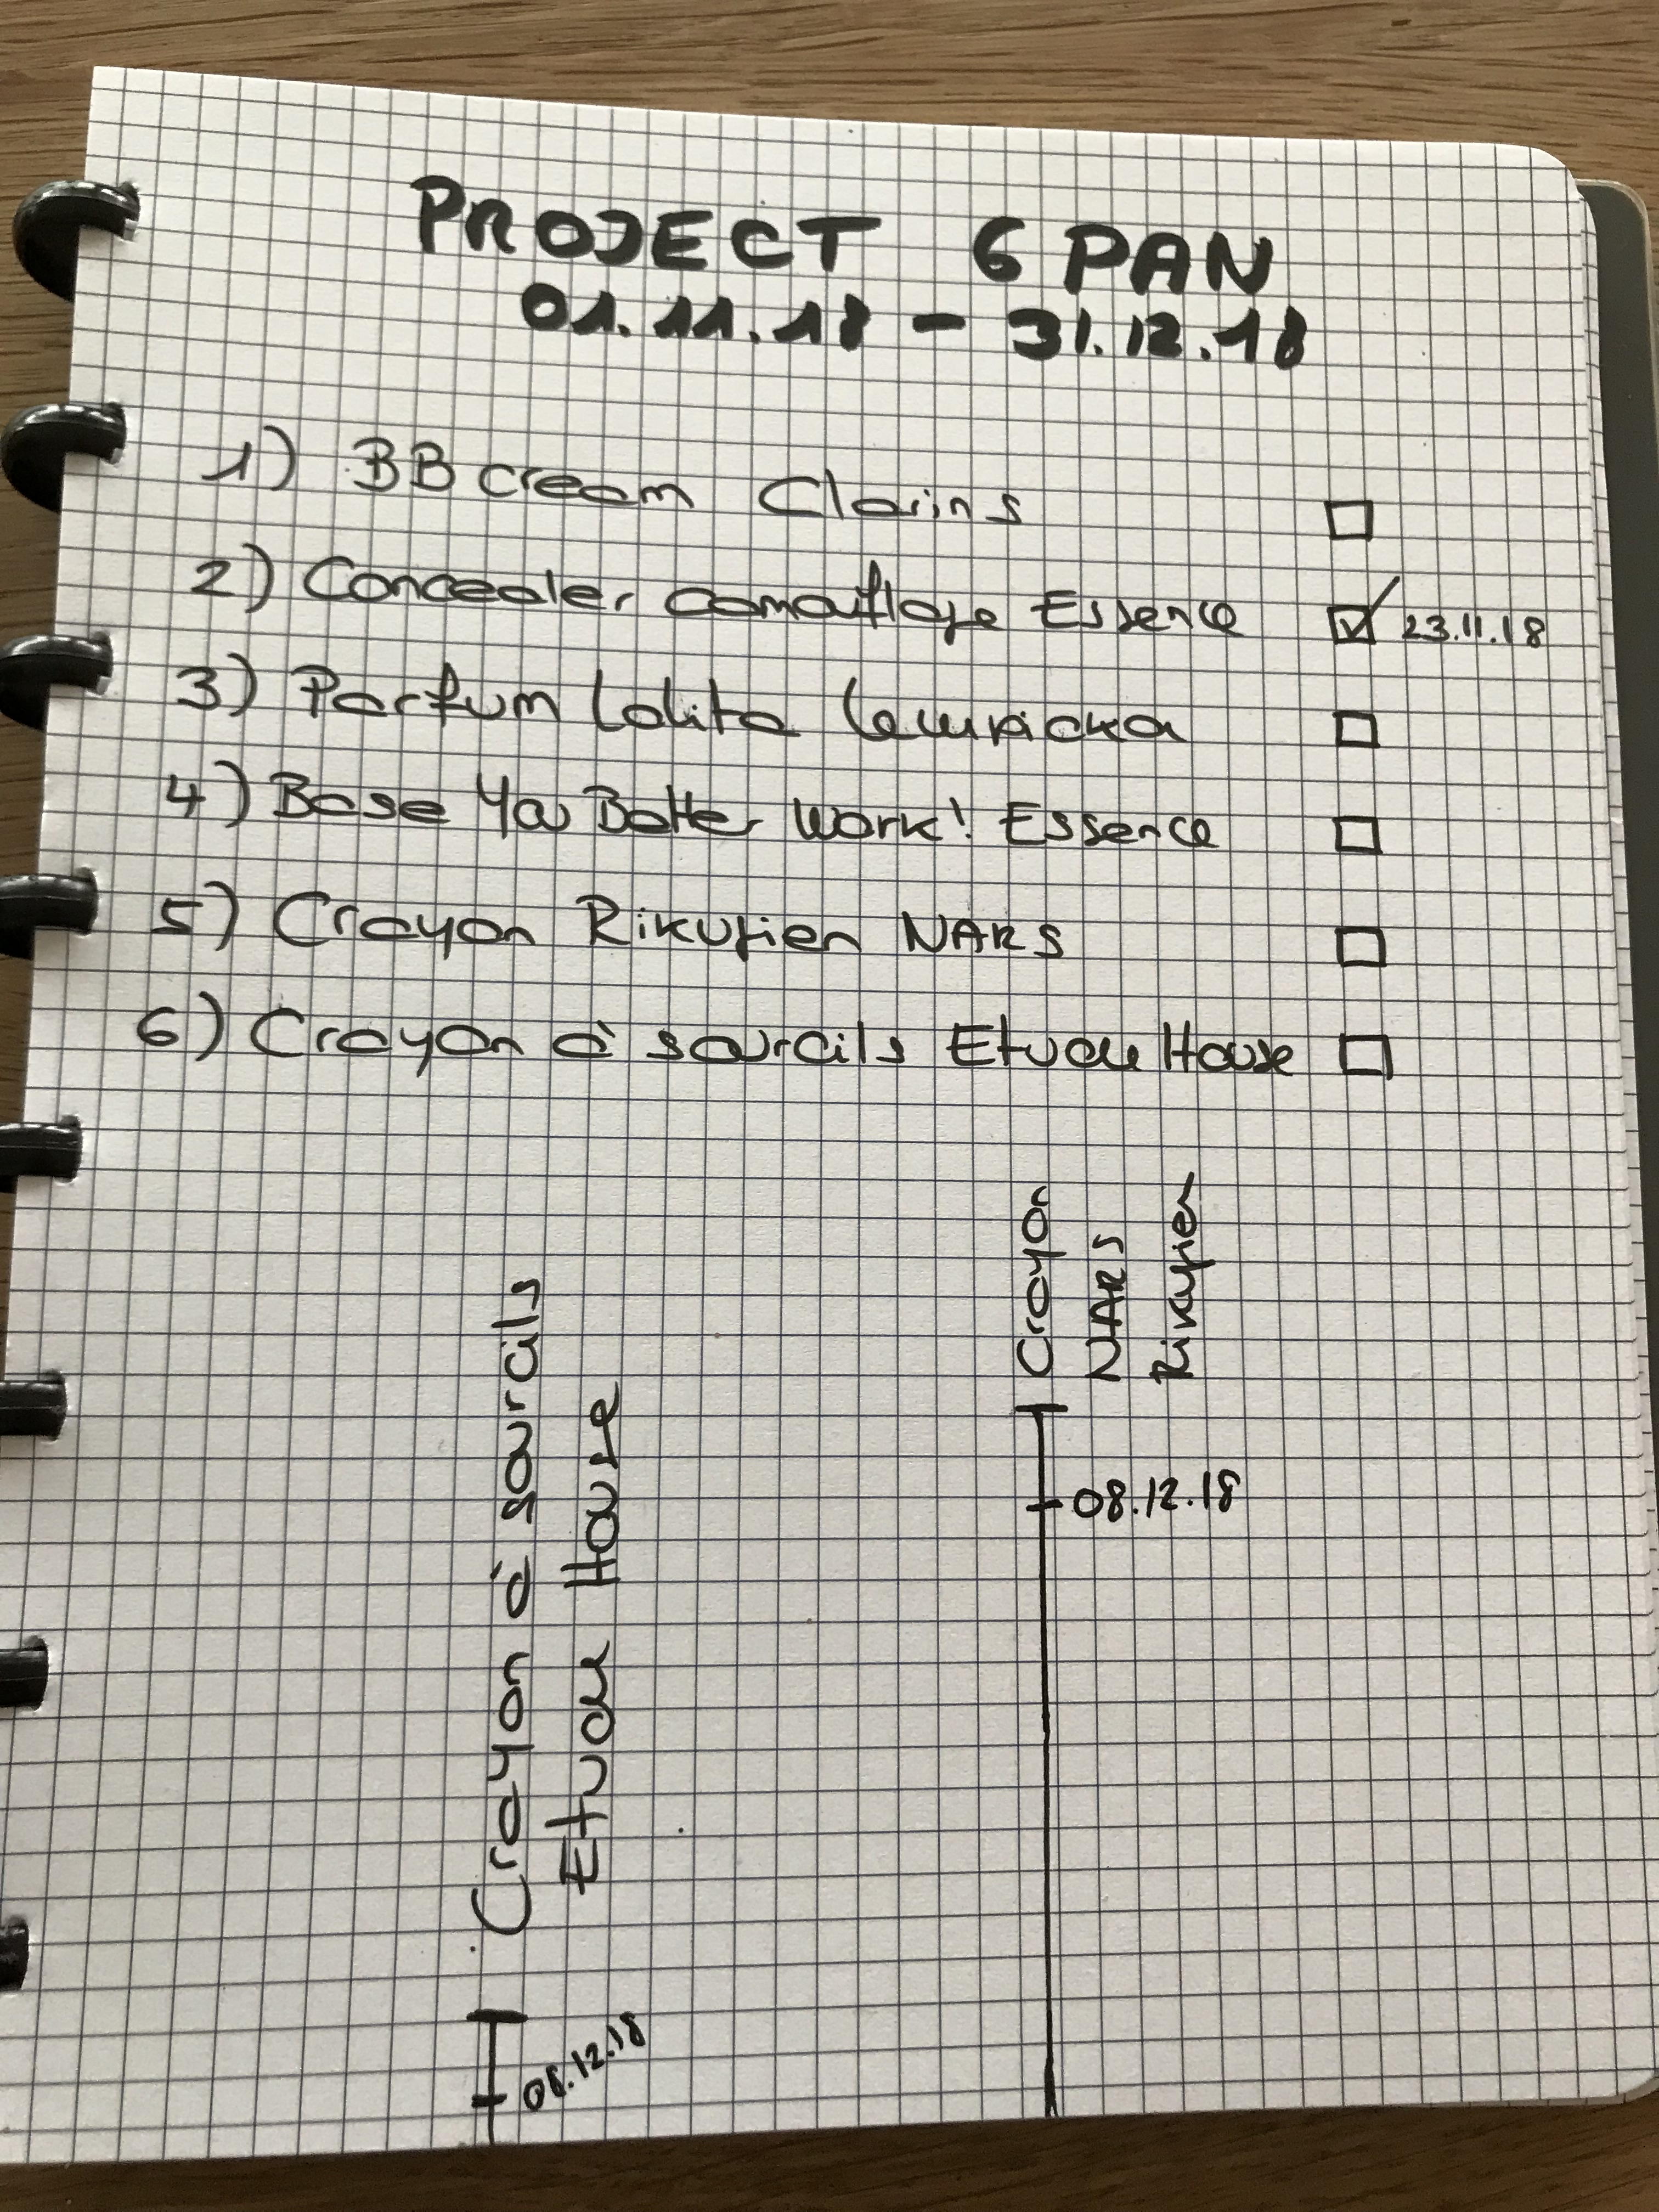 PROJECT 6 PAN
01.11.18 - 31.12.18
1) BB cream Clarins
2) Concealer camouflage Essence 23.11.18
3) Parfum Lolita Lempicka
4) Base You Better Work! Essence
5) Crayon Rikugien NARS
6) Crayon à sourcils Etude House
Crayon à sourcils
Etude House
08.12.18
Crayon
NARS
Rikugien
08.12.18